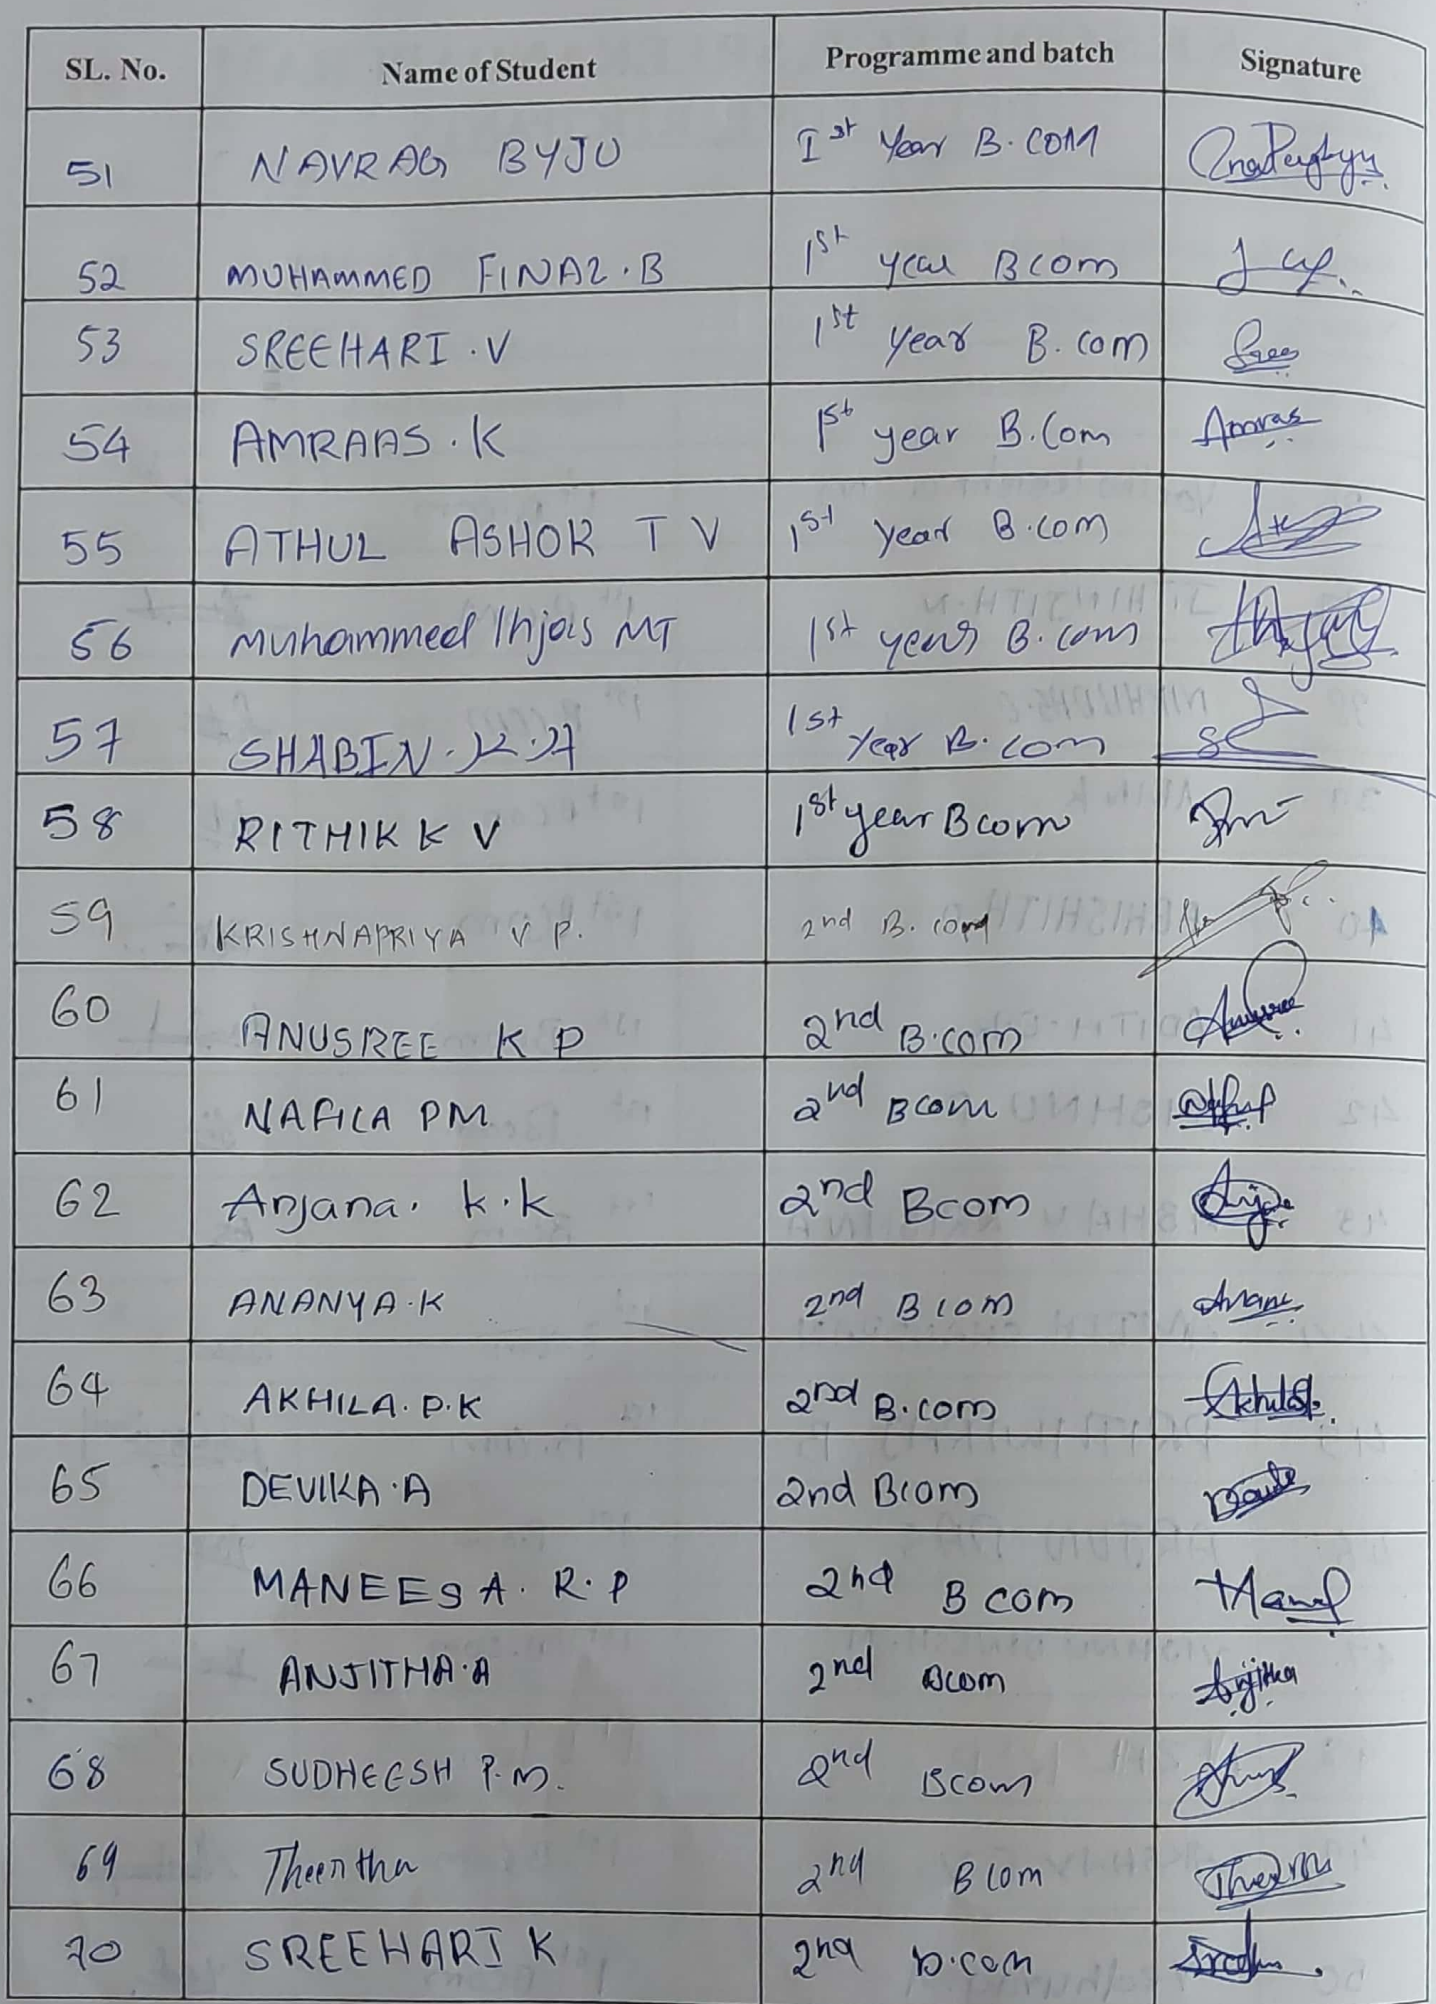 SL. No. Name of Student Programme and batch Signature
51 NAVRAG BYJU Ist Year B.COM
52 MUHAMMED FINAZ.B 1st year Bcom
53 SREEHARI.V 1st year B.com Sree
54 AMRAAS.K 1st year B.Com Amras
55 ATHUL ASHOK T V 1st year B.com
56 Muhammed Ihjas MT 1st year B.com
57 SHABIN.K.A 1st Year B.com
58 RITHIK K V 1st year Bcom
59 KRISHNAPRIYA V P. 2nd B.com
60 ANUSREE K P 2nd B.com Anusree
61 NAFILA PM 2nd Bcom
62 Anjana. K.K 2nd Bcom
63 ANANYA.K 2nd Bcom
64 AKHILA.P.K 2nd B.com
65 DEVIKA.A 2nd Bcom
66 MANEESA.R.P 2nd Bcom
67 ANJITHA.A 2nd Bcom Anjitha
68 SUDHEESH P.M. 2nd Bcom
69 Theertha 2nd Bcom
70 SREEHARI K 2nd B.com